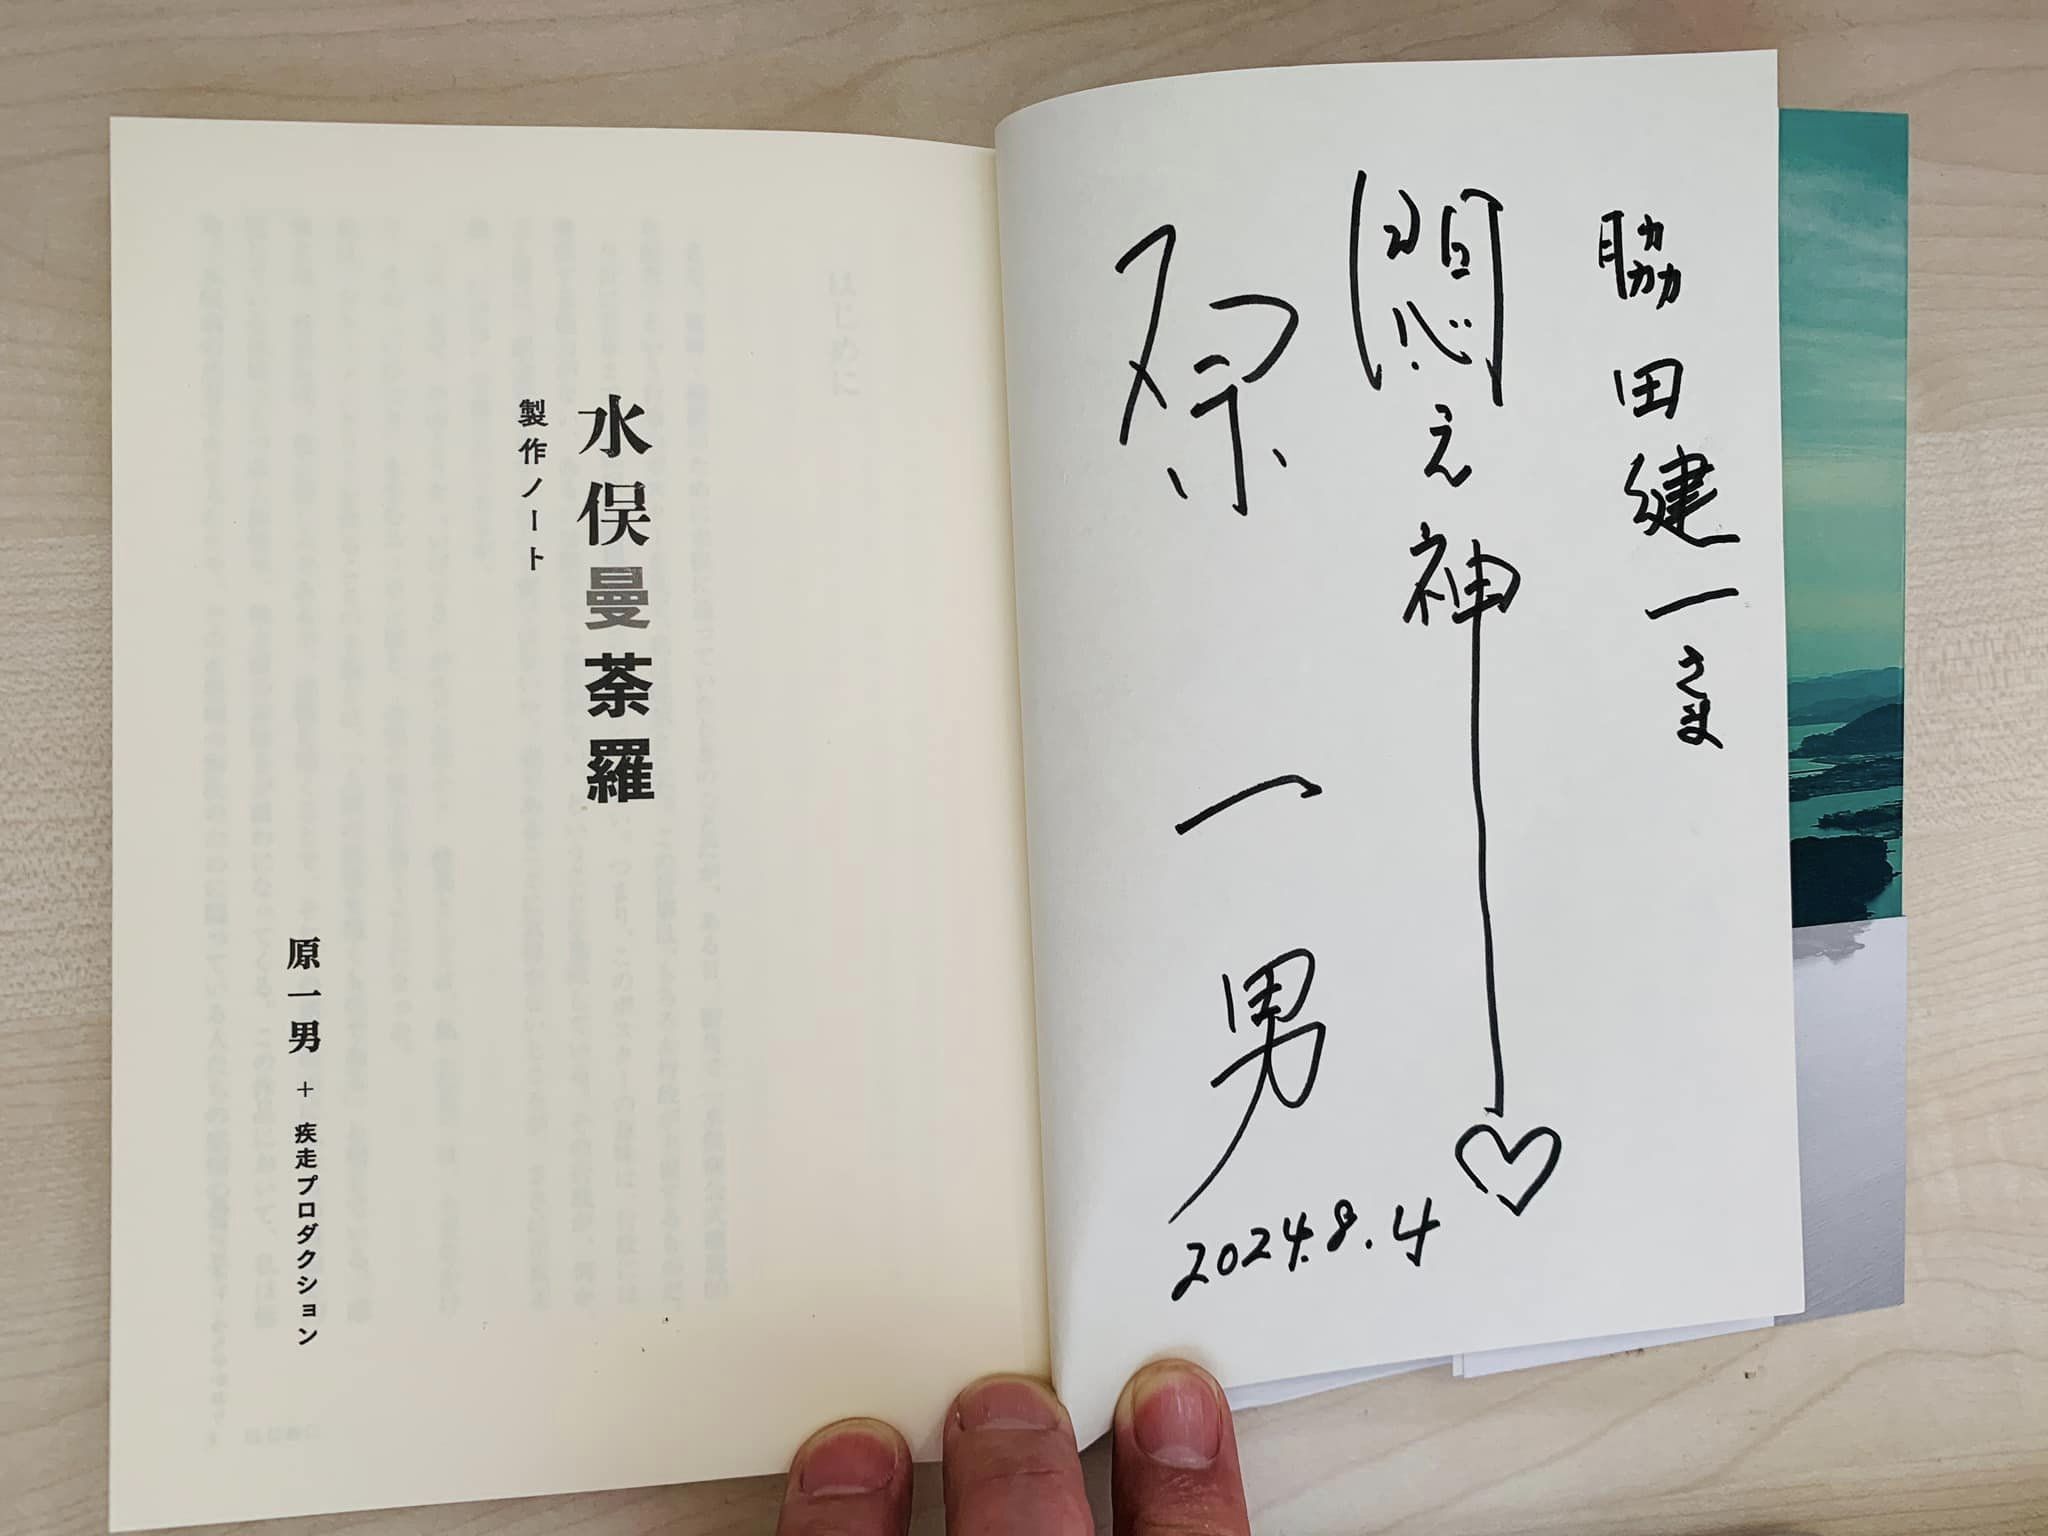 脇田健一さま
悶え神
原一男
2024.8.4
水俣曼荼羅
製作ノート
原一男 + 疾走プロダクション
はじめに